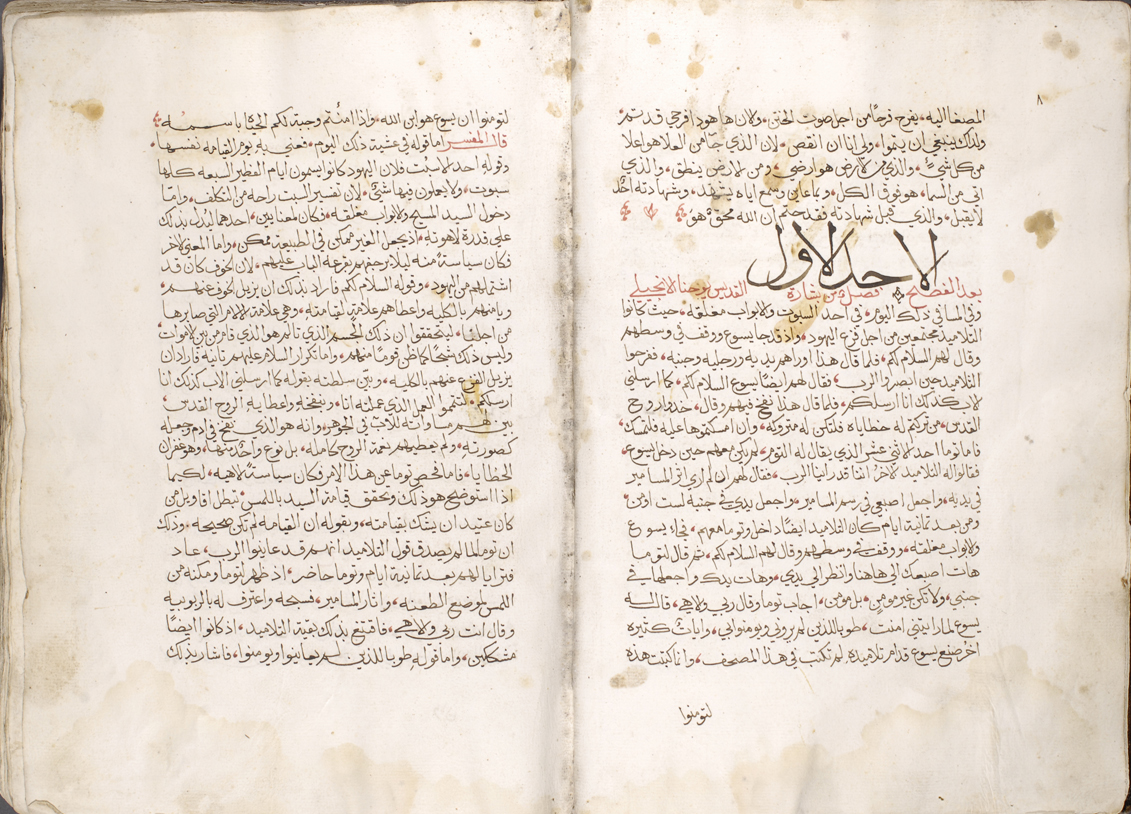 ٨
المصغا اليه، يفرح فرحًا من اجل صوت الختن، ولان هاهوذا فرحي قد تم،
ولذلك ينبغي ان ينموا، ولي انا ان انقص، لان الذي جا من العلا هو اعلا
من كل شيء، والذي من الارض هو ارضي، ومن الارض ينطق، والذي
اتى من السما، هو فوق الكل، وبما عاين وسمع اياه يشهد، وشهادته احد
لا يقبل، والذي قبل شهادته فقد ختم ان الله محق هو
الاحد الاول
بعد الفصح فصل من بشارة القديس يوحنا الانجيلي
وفي المسا في ذلك اليوم، في احد السبوت والابواب مغلقه، حيث كانوا
التلاميذ مجتمعين من اجل فزع اليهود، واذ قد جا يسوع ووقف في وسطهم
وقال لهم السلام لكم، فلما قال هذا اوراهم يديه ورجليه وجنبه، ففرحوا
التلاميذ حين ابصروا الرب، فقال لهم ايضًا يسوع السلام لكم، كما ارسلني
الاب كذلك انا ارسلكم، فلما قال هذا نفخ فيهم وقال، خدوا روح
القدس، من تركتم له خطاياه فلتكن له متروكه، وان امسكتموها عليه فلتمسك
فاما توما احد الاثني عشر الذي يقال له التوم، لم يكن معهم حين دخل يسوع،
فقالوا له التلاميذ الاخر اننا قد راينا الرب، فقال لهم ان لم ارى اثر المسامير
في يديه، واجعل اصبعي في رسم المسامير، واجعل يدي في جنبه لست اومن
ومن بعد تمانية ايام كان التلاميذ ايضًا داخل وتوما معهم، فجا يسوع
والابواب مغلقه، ووقف في وسطهم وقال لهم السلام لكم، ثم قال لتوما
هات اصبعك الى هاهنا وانظر الى يدي، وهات يدك واجعلها في
جنبي، ولا تكن غير مومن، بل مومن، اجاب توما وقال ربي والاهي، قال له
يسوع لما رايتني امنت، طوبا للذين لم يروني ويومنوا بي، وايات كثيره
اخر صنع يسوع قدام تلاميذه لم تكتب في هذا المصحف، وانما كتبت هذه
لتومنوا
لتومنوا ان يسوع هو ابن الله، واذا امنتم وجبة لكم الحياة باسمه
قال المفسر اما قوله في عشية ذلك اليوم، فعنى به يوم القيامه نفسها،
وقوله احد السبت فلان اليهود كانوا يسمون ايام الفطير السبعه كلها
سبوت، ولا يعملون فيها شيئ، لان تفسير السبت راحه من التكلف، واما
دخول السيد المسيح والابواب مغلقه، فكان لمعنايين، احدهم ليدل بذلك
على قدرة لاهوته، اذ جعل الغير ممكن في الطبيعة ممكن، واما المعنى الاخر
فكان سياسة منه ليلا يرجفهم بقرعه الباب عليهم، لان الخوف كان قد
اشتملهم من اليهود، وقوله السلام لكم فاراد بذلك ان يزيل الخوف عنهم،
ويامنهم بالكليه واعطاهم علامة لقيامته، وهي علامة الالام التي صابرها
من اجلنا، ليتحققوا ان ذلك الجسم الذي تالم هو الذي قام من بين الاموات
وليس ذلك شبحًا كما ظن قومًا منهم، واما تكرار السلام عليهم تانية فاراد ان
يزيل الفزع عنهم بالكليه، وبين سلطنته بقوله كما ارسلني الاب كذلك انا
ارسلكم، لتتموا العمل الذي عملته انا، وبنفخه واعطايه الروح القدس
بين لهم مساواته للاب في الجوهر، وانه هو الذي نفخ في ادم وجعله
كصورته، ولم يعطيهم نعمة الروح كامله، بل نوع واحد منها، وهو غفران
الخطايا، فاما فحص توما عن هذا الامر فكان سياسة الاهيه، لكيما
اذا استوضح هو ذلك وتحقق قيامة السيد باللمس، تبطل اقاويل من
كان عتيد ان يشك بقيامته، وبقوله ان القيامه لم تكن صحيحه، وذلك
ان توما لما لم يصدق قول التلاميذ انهم قد عاينوا الرب، عاد
فترايا لهم بعد تمانية ايام وتوما حاضر، اذ ظهر لتوما ومكنه من
اللمس لموضع الطعنه، واثار المسامير، فسبحه واعترف له بالربوبيه
وقال انت ربي والاهي، فاقتنع بذلك بقية التلاميذ، اذ كانوا ايضًا
مشككين، واما قوله طوبا للذين لم يعاينوا ويومنوا، فاشار بذلك